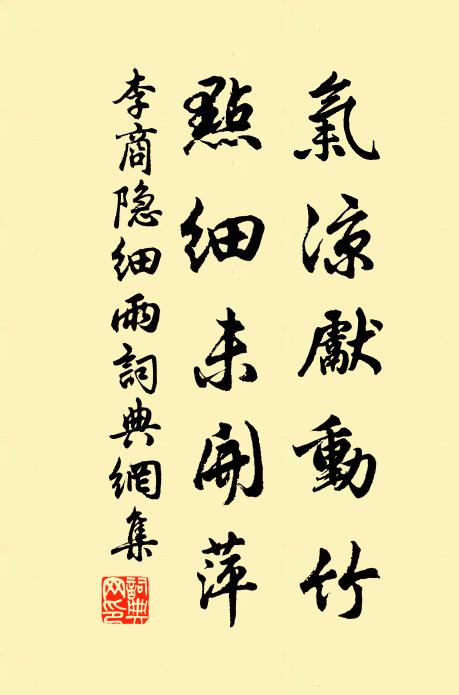 氣涼獻動竹
點細未開萍
李商隐細雨詞典網集
詞典网印